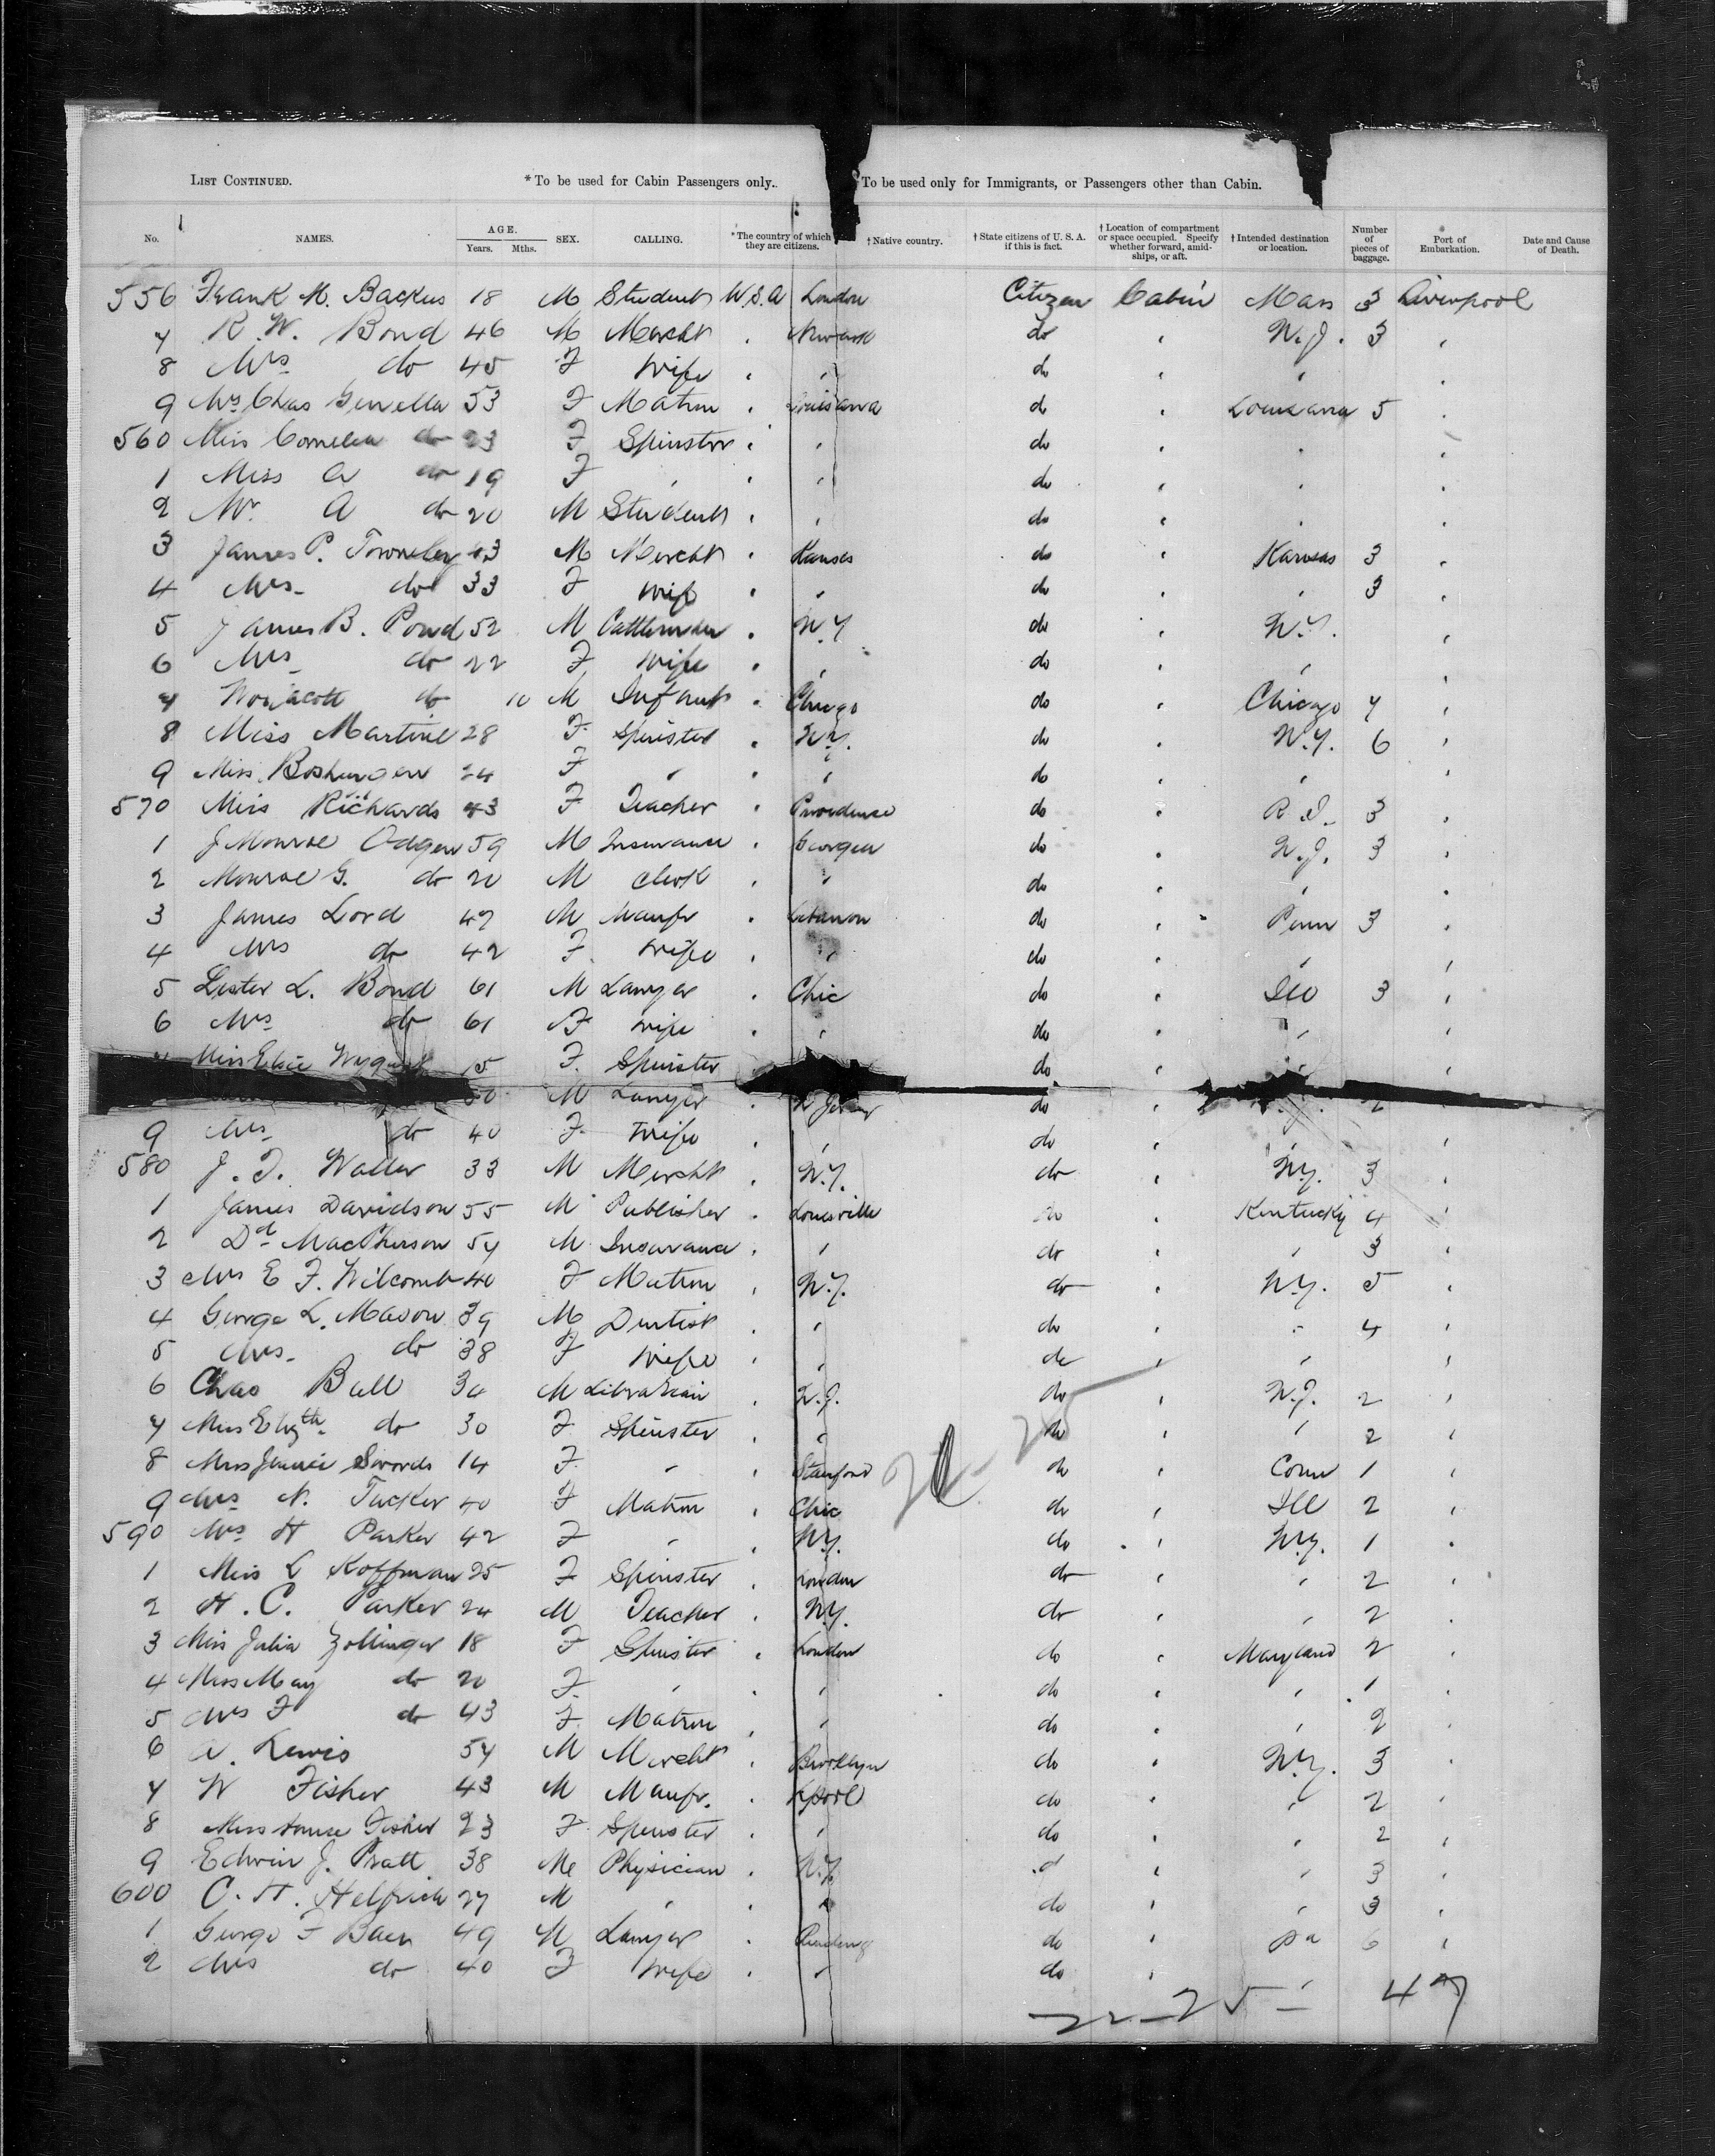 LIST CONTINUED. *To be used for Cabin Passengers only. To be used only for Immigrants, or Passengers other than Cabin.
No. NAMES. AGE. Years. Mths. SEX. CALLING. *The country of which they are citizens. †Native country. †State citizens of U. S. A. if this is fact. †Location of compartment or space occupied. Specify whether forward, amidships, or aft. †Intended destination or location. Number of pieces of baggage. Port of Embarkation. Date and Cause of Death.
556 Frank M. Backus 18 M Student U.S.A London Citizen Cabin Mass 3 Liverpool
7 R. W. Bond 46 M Mercht " Newark do " N.J. 3 "
8 Mrs do 45 F Wife " " do " " "
9 Mrs Chas 53 F Matron " Louisiana do " Louisiana 5 "
560 Miss Cornelia do 23 F Spinster " " do " " "
1 Miss A do 19 F " " " do " " "
2 Mr. A do 20 M Student " " do " " "
3 James P. Townley 43 M Mercht " Kansas do " Kansas 3 "
4 Mrs do 33 F Wife " " do " " 3 "
5 James B. Pond 52 M " N.Y do " N.Y. "
6 Mrs do 22 F Wife " " do " " "
7 do 10 M Infant " Chicago do " Chicago 7 "
8 Miss Martine 28 F Spinster " N.Y. do " N.Y. 6 "
9 Miss 24 F " " " do " " "
570 Miss Richards 43 F Teacher " Providence do " R.I. 3 "
1 J Monroe Odgen 59 M Insurance " Georgia do " N.J. 3 "
2 Monroe G. do 20 M Clerk " " do " " "
3 James Lord 47 M Manfr " Lebanon do " Penn 3 "
4 Mrs do 42 F Wife " " do " " "
5 Lester L. Bond 61 M Lawyer " Chic do " Ill 3 "
6 Mrs do 61 F Wife " " do " " "
7 Miss Elsie 15 F Spinster do " " "
M Lawyer " N Jersey do "
9 Mrs do 40 F Wife " " do " " "
580 J. T. Waller 33 M Mercht " N.Y. do " N.Y. 3 "
1 James Davidson 55 M Publisher " Louisville do " Kentucky 4 "
2 Dd MacPherson 57 M Insurance " " do " " 3 "
3 Mrs E F. Wilcomb 40 F Matron " N.Y. do " N.Y. 5 "
4 George L. Mason 39 M Dentist " " do " " 4 "
5 Mrs do 38 F Wife " " do " " "
6 Chas Ball 34 M Librarian " N.J. do " N.J. 2 "
7 Miss Elizth do 30 F Spinster " " do " " 2 "
8 Miss Jennie Swords 14 F " " Stanford do " Conn 1 "
9 Mrs N. Tucker 40 F Matron " Chic do " Ill 2 "
590 Mrs H Parker 42 F " " N.Y. do " N.Y. 1 "
1 Miss L Koffman 25 F Spinster " London do " " 2 "
2 H. C. Parker 24 M Teacher " N.Y. do " " 2 "
3 Miss Julia Zollinger 18 F Spinster " London do " Maryland 2 "
4 Miss May do 20 F " " " do " " 1 "
5 Mrs F do 43 F Matron " " do " " 2 "
6 A. Lewis 54 M Mercht " Brooklyn do " N.Y. 3 "
7 W Fisher 43 M Manfr. " Lpool do " " 2 "
8 Miss Fisher 23 F Spinster " " do " " 2 "
9 Edwin J. Pratt 38 M Physician " N.Y. do " " 3 "
600 C. H. Helfrich 27 M " " " do " " 3 "
1 George F Baer 49 M Lawyer " Reading do " Pa 6 "
2 Mrs do 40 F Wife " " do " "
22-25- 47